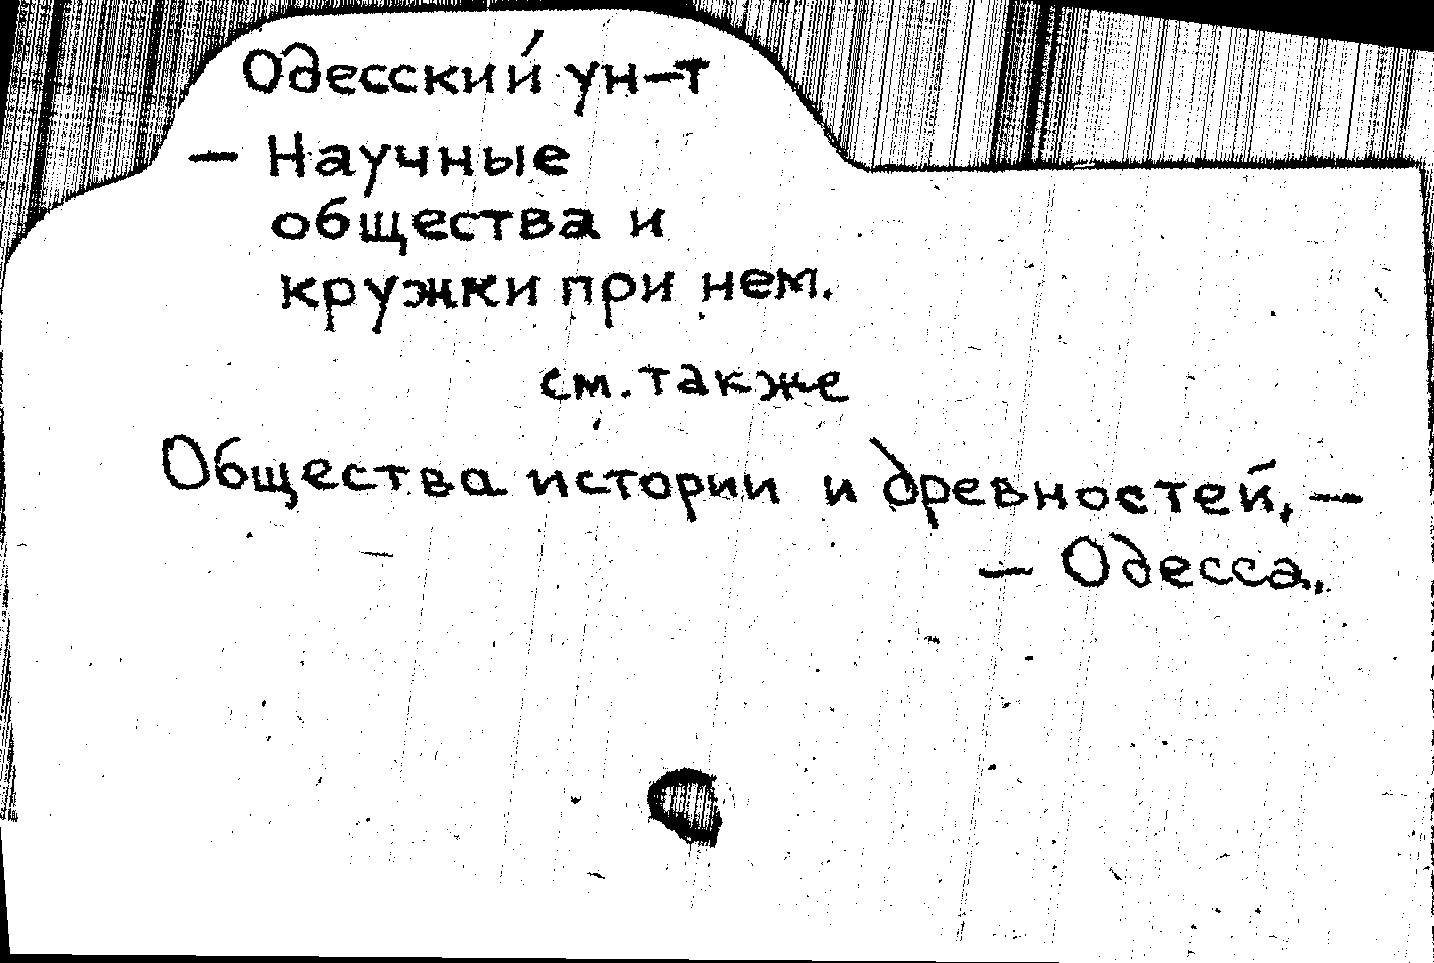 Одесский ун-т
— Научные
общества и
кружки при нем.
см. также
Общества истории и древностей, —
— Одесса.